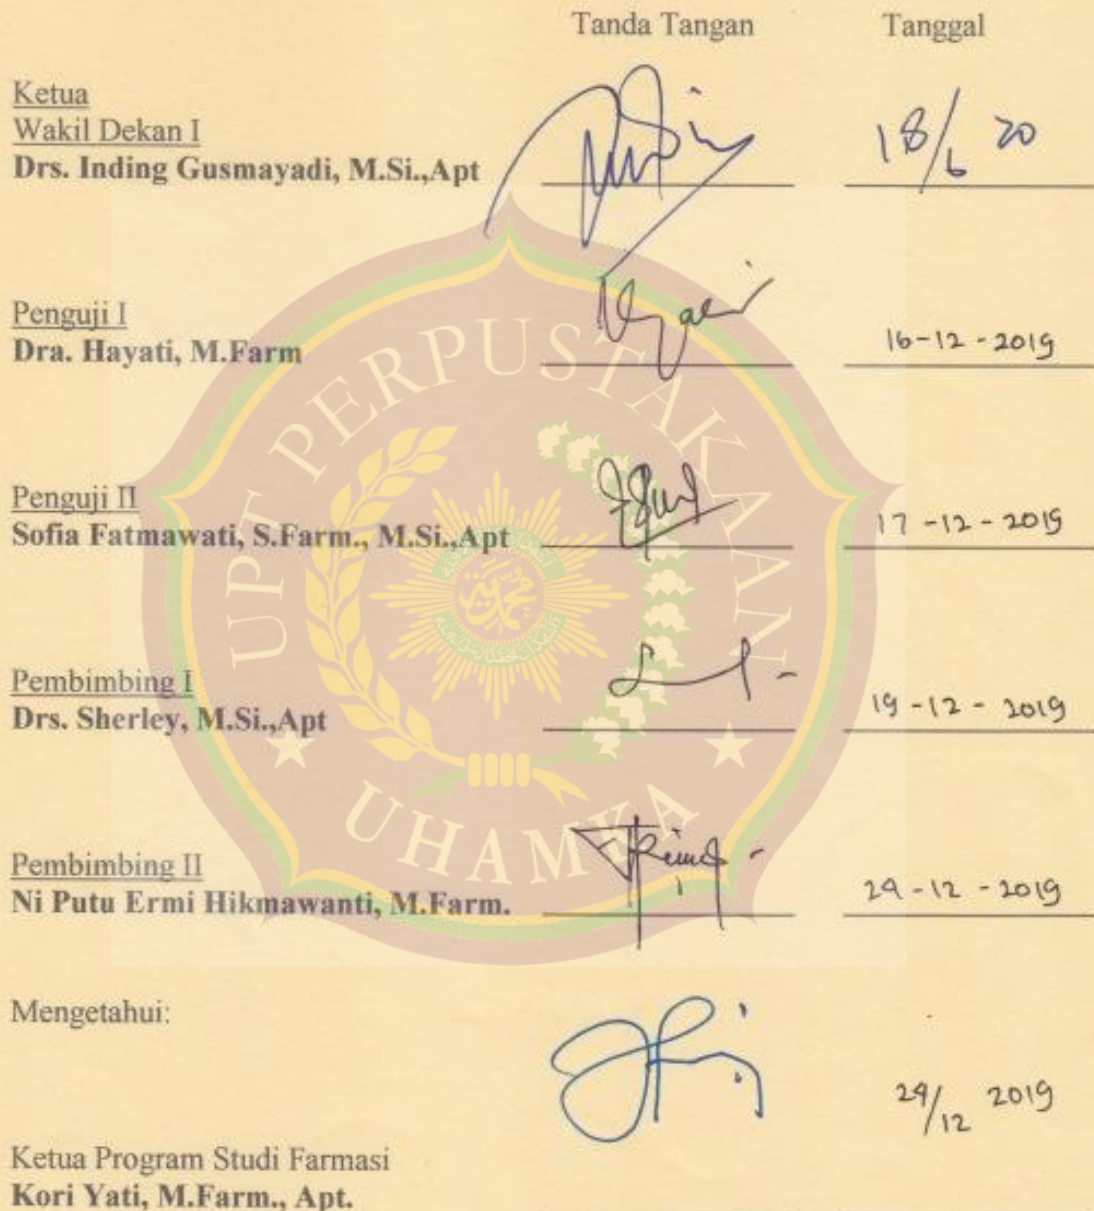 Tanda Tangan Tanggal
Ketua
Wakil Dekan I
Drs. Inding Gusmayadi, M.Si.,Apt 18/6 20
Penguji I
Dra. Hayati, M.Farm 16-12-2019
Penguji II
Sofia Fatmawati, S.Farm., M.Si.,Apt 17-12-2019
Pembimbing I
Drs. Sherley, M.Si.,Apt 19-12-2019
Pembimbing II
Ni Putu Ermi Hikmawanti, M.Farm. 24-12-2019
Mengetahui:
24/12 2019
Ketua Program Studi Farmasi
Kori Yati, M.Farm., Apt.
UPT PERPUSTAKAAN
UHAMKA